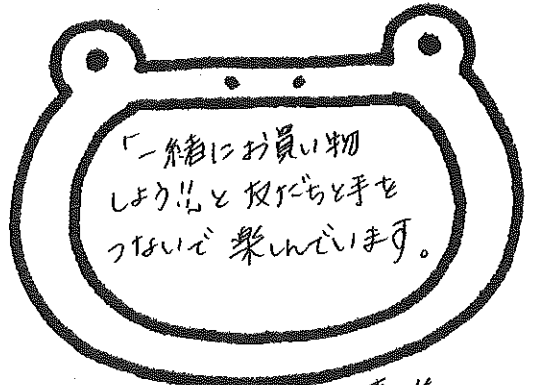 「一緒にお買い物
しよう!!」と友だちと手を
つないで楽しんでいます。